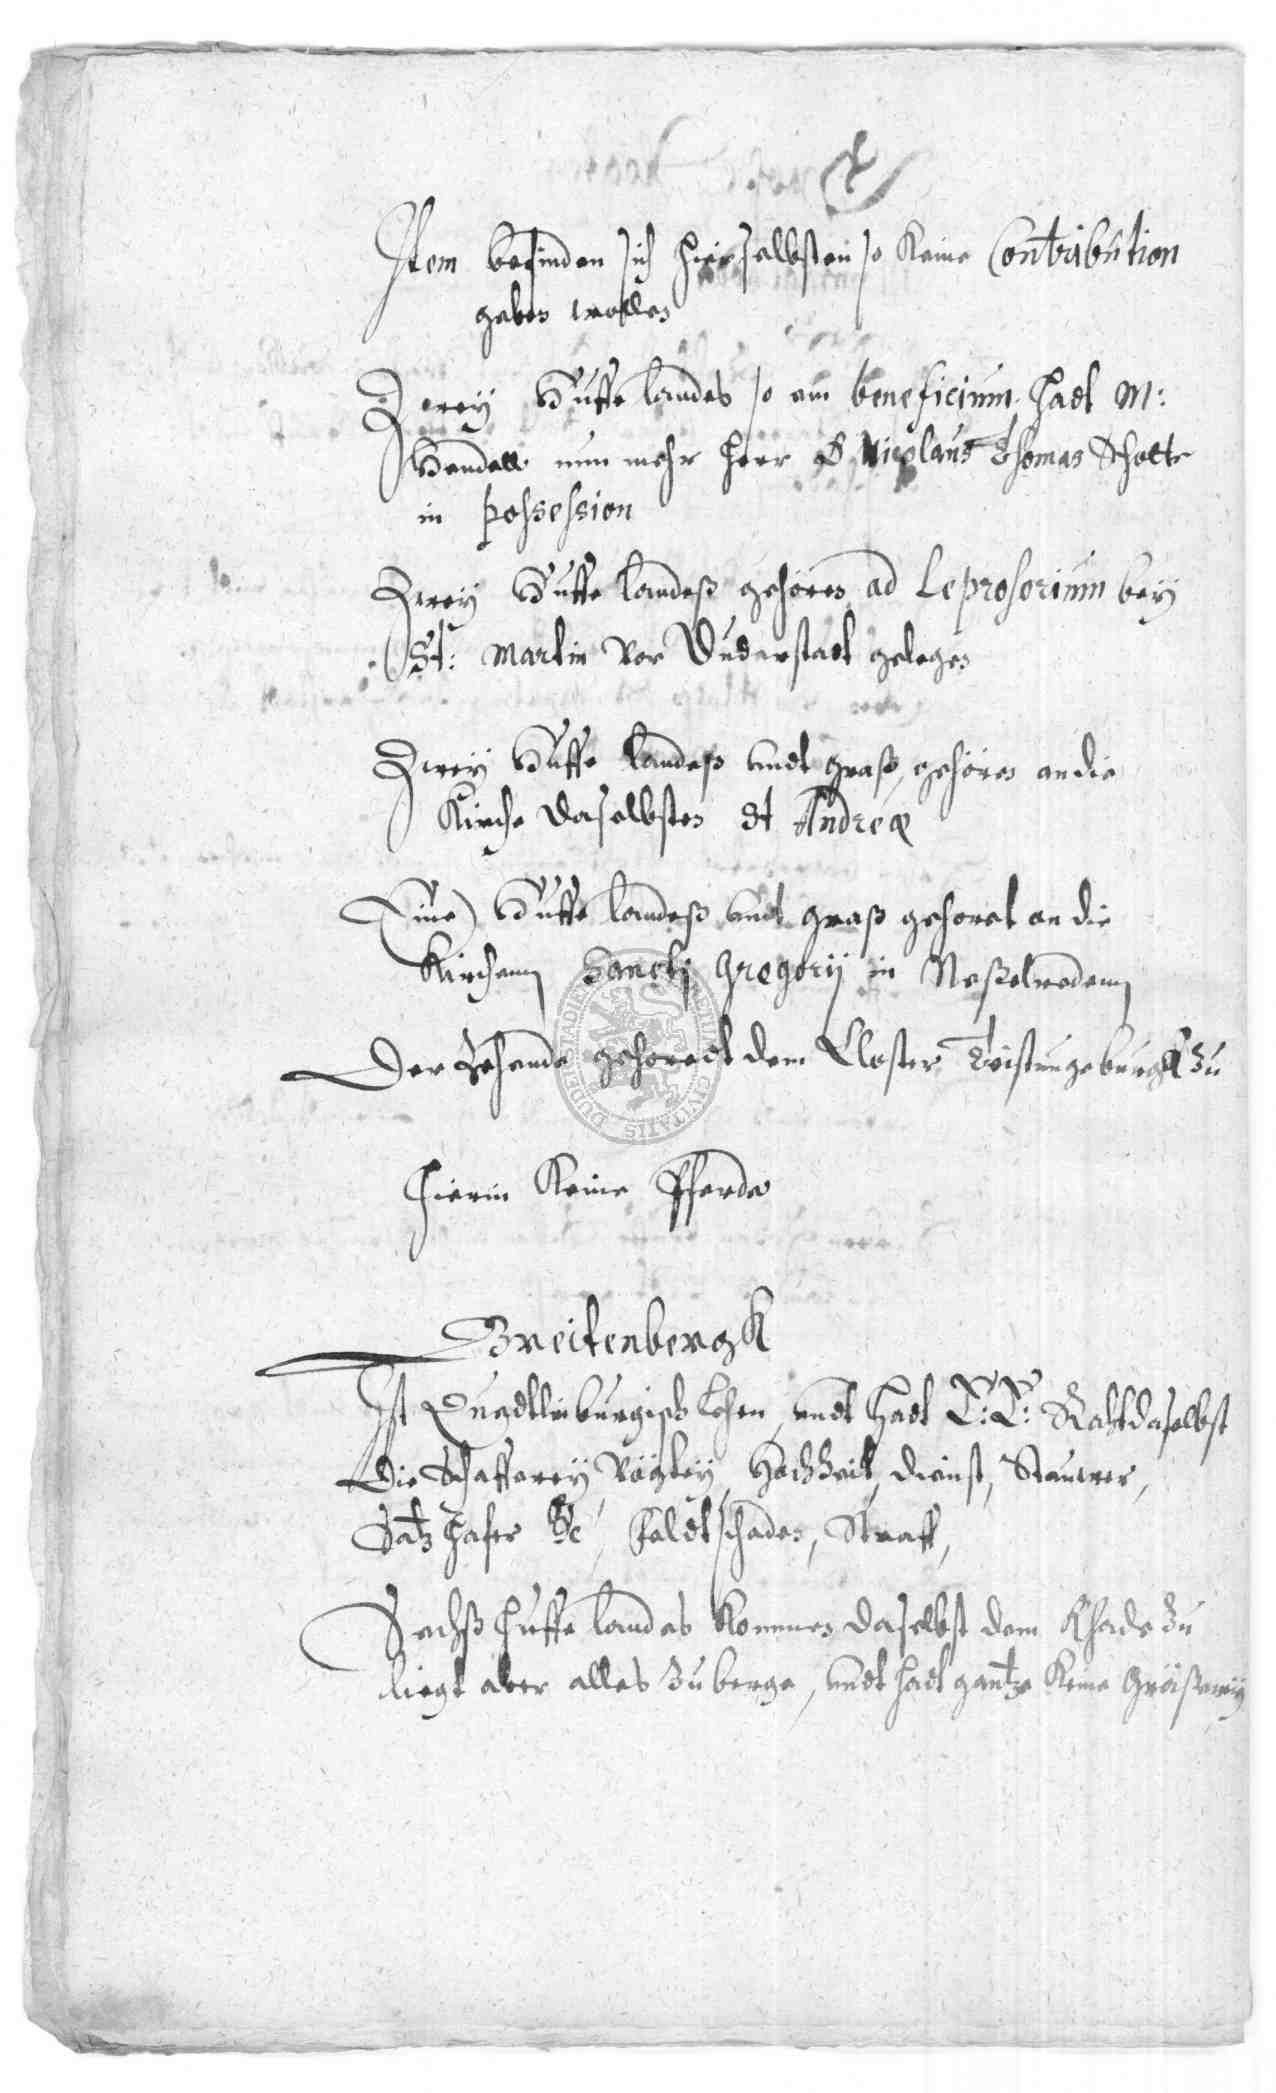 Item befinden sich hierselbsten so Keine Contribution
geben wollen
Zwey Huffe landes so ein beneficium, hadt M:
Wendell nun mehr herr D Nicolaus Thomas Schotte
in possession
Zwey Huffe landeß gehören ad Leprosorium bey
St: Martin vor Duderstadt gelegen
Zwey Huffe landeß undt graß, gehören an die
Kirche daselbsten St Andreæ
Eine Huffe landeß undt graß gehoret an die
Kirchenn Sancti Gregorij in Neßelredenn
Der Zehende gehoredt dem Closter Teistungeburgk zu
Hierin Keine Pferde
Breitenbergk
Ist Quedtlinburgisch Lehen, undt hadt E: E: Raht daselbst
die Schafferey, Vogtey, Hochheit, dienst, Steuwer,
Satz hafer &c, Feldtschaden, Straff,
Sechß Huffe landes Kommen daselbst dem Rhade zu
liegt aber alles zu berge, undt hadt gantze Keine Gräßerey
DUDERSTADIENSIS CIVITATIS